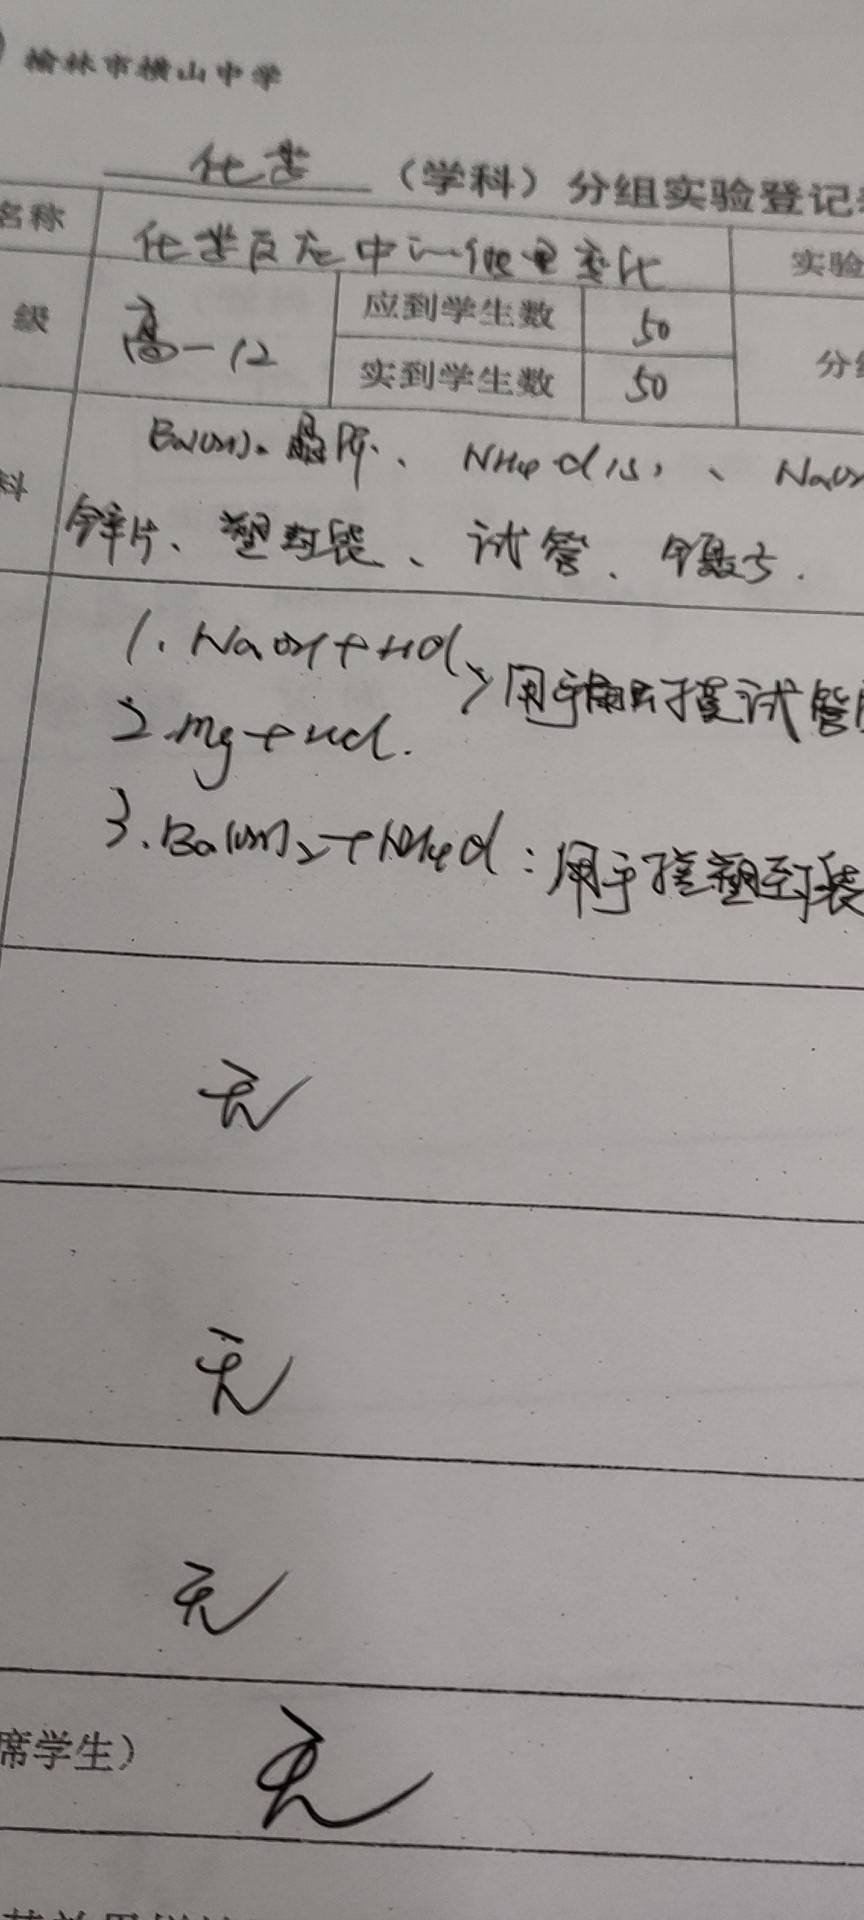 榆林市横山中学
化学 （学科）分组实验登记
名称 化学反应中的能量变化 实验
级 高一12 应到学生数 50 分
实到学生数 50
料 Ba(OH)₂ 晶体、NH₄Cl(s)、NaOH
锌片、塑封袋、试管、镊子.
1. NaOH+HCl
2. Mg+HCl.
用手触摸试管
3. Ba(OH)₂+NH₄Cl：用手摸塑封袋
无
无
无
席学生） 无